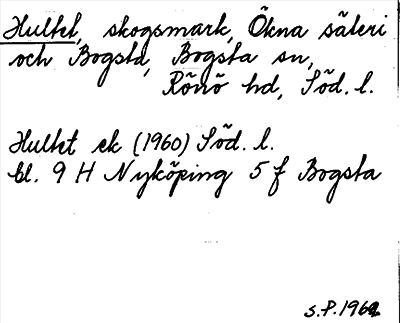 Hultet, skogsmark, Ökna säteri
och Bogsta, Bogsta sn,
Rönö hd, Söd. l.
Hultet ek (1960) Söd. l.
bl. 9 H Nyköping 5 f Bogsta
S.P. 1962